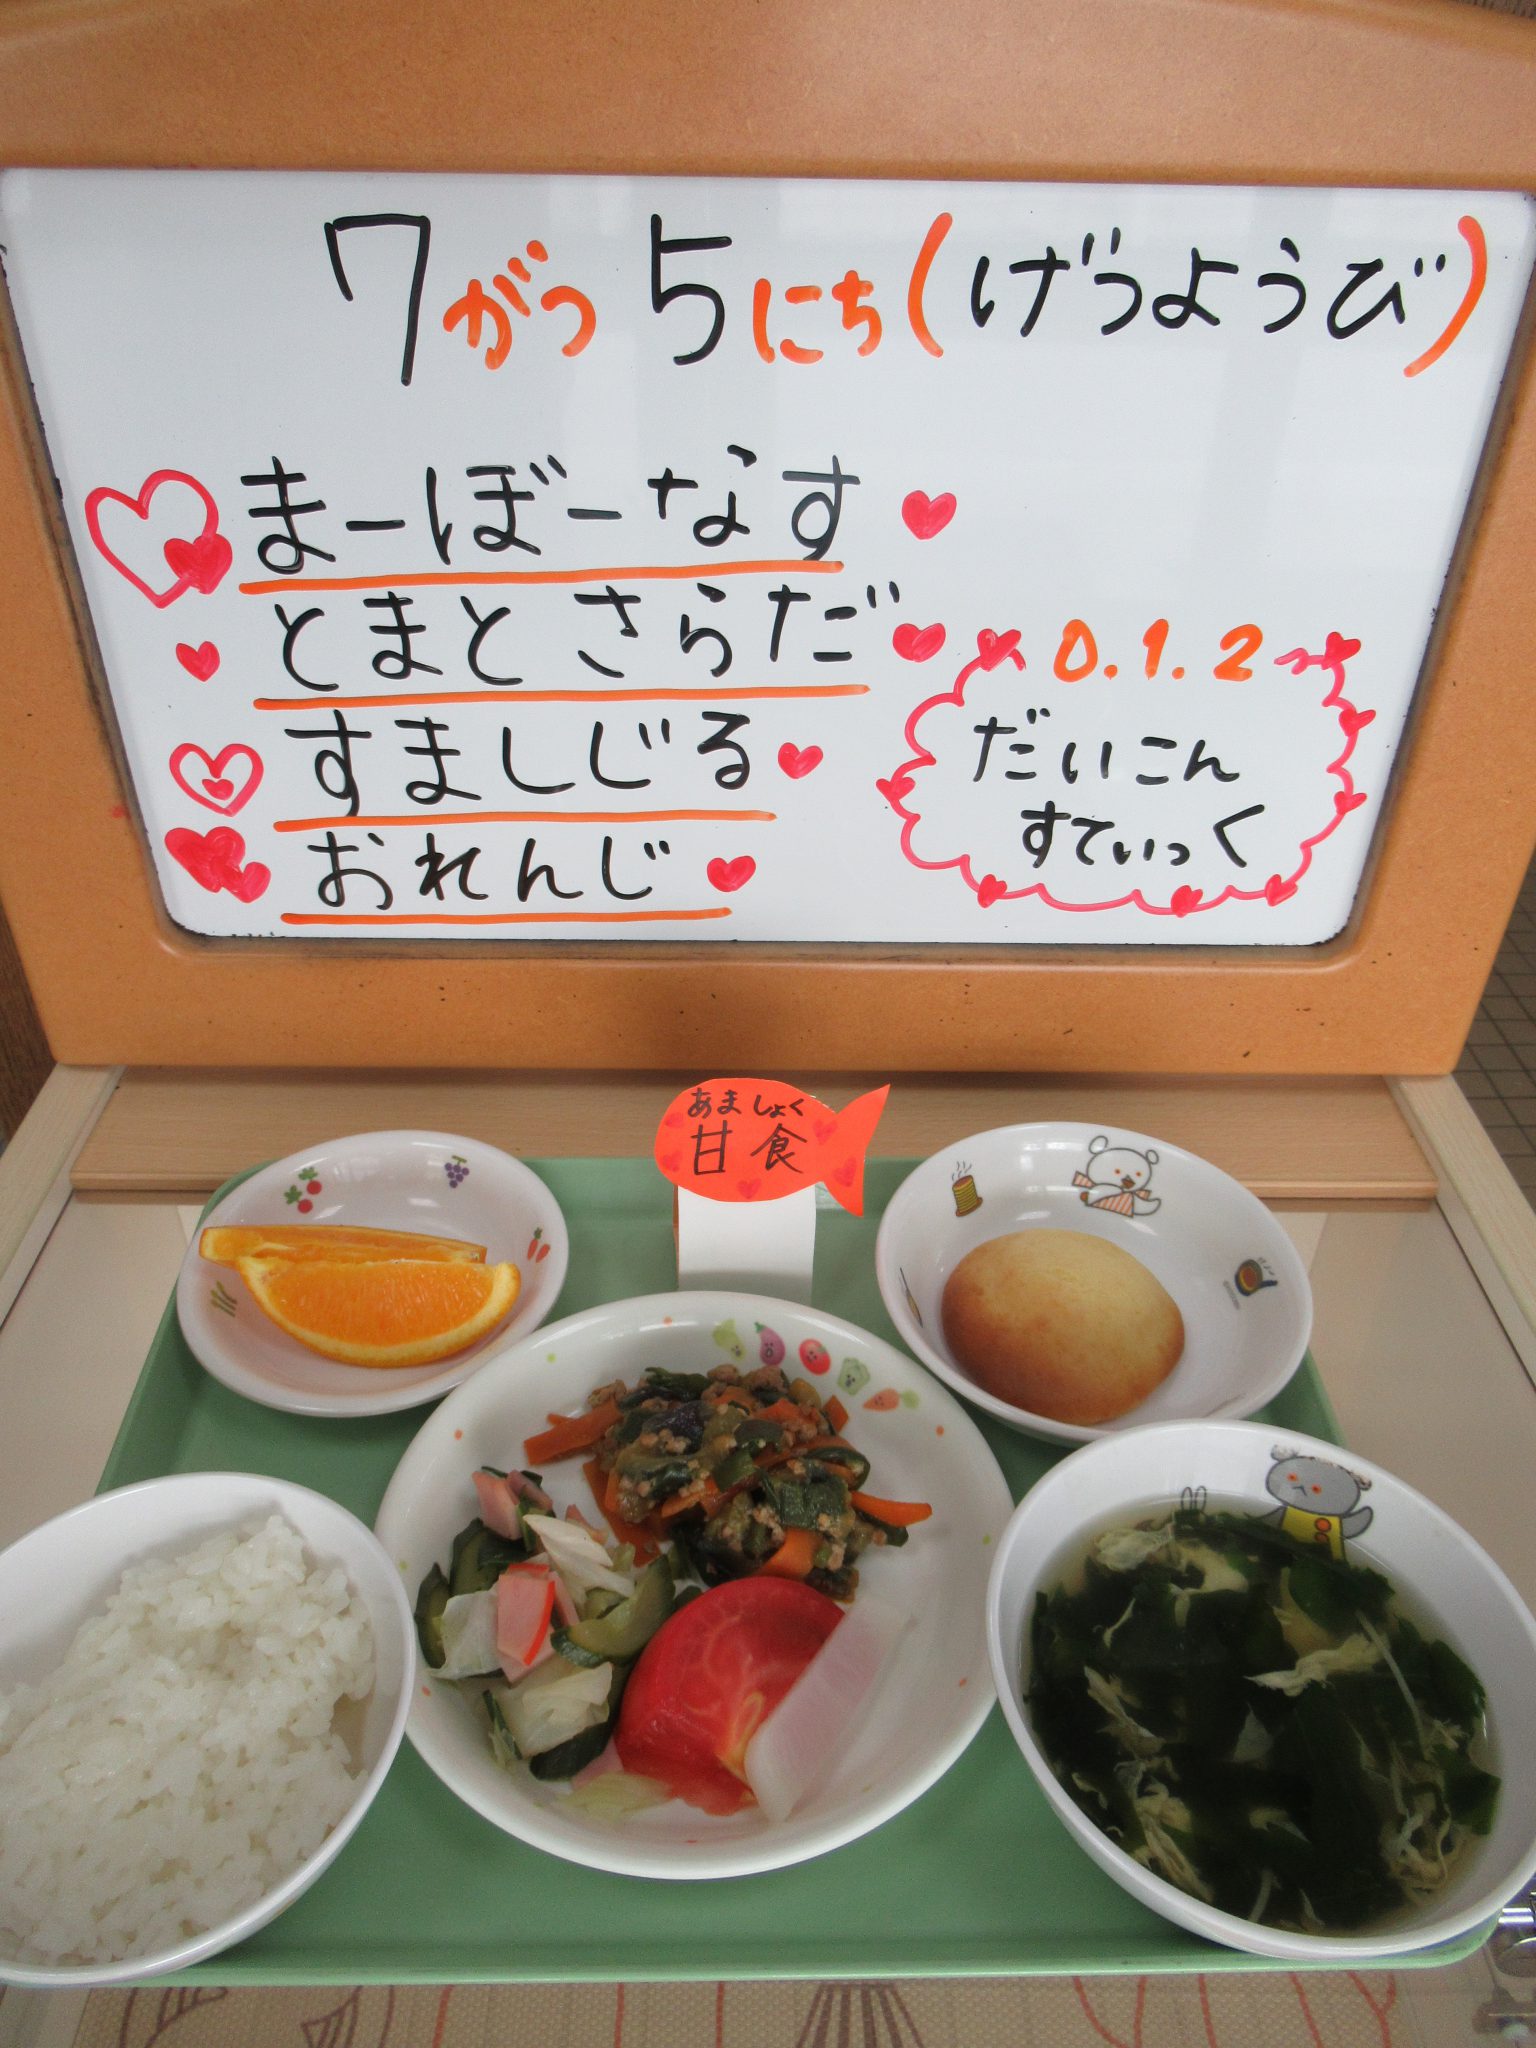 7がつ5にち(げつようび)
まーぼーなす
とまとさらだ
すましじる
おれんじ
0.1.2
だいこん
すてぃっく
あましょく
甘食